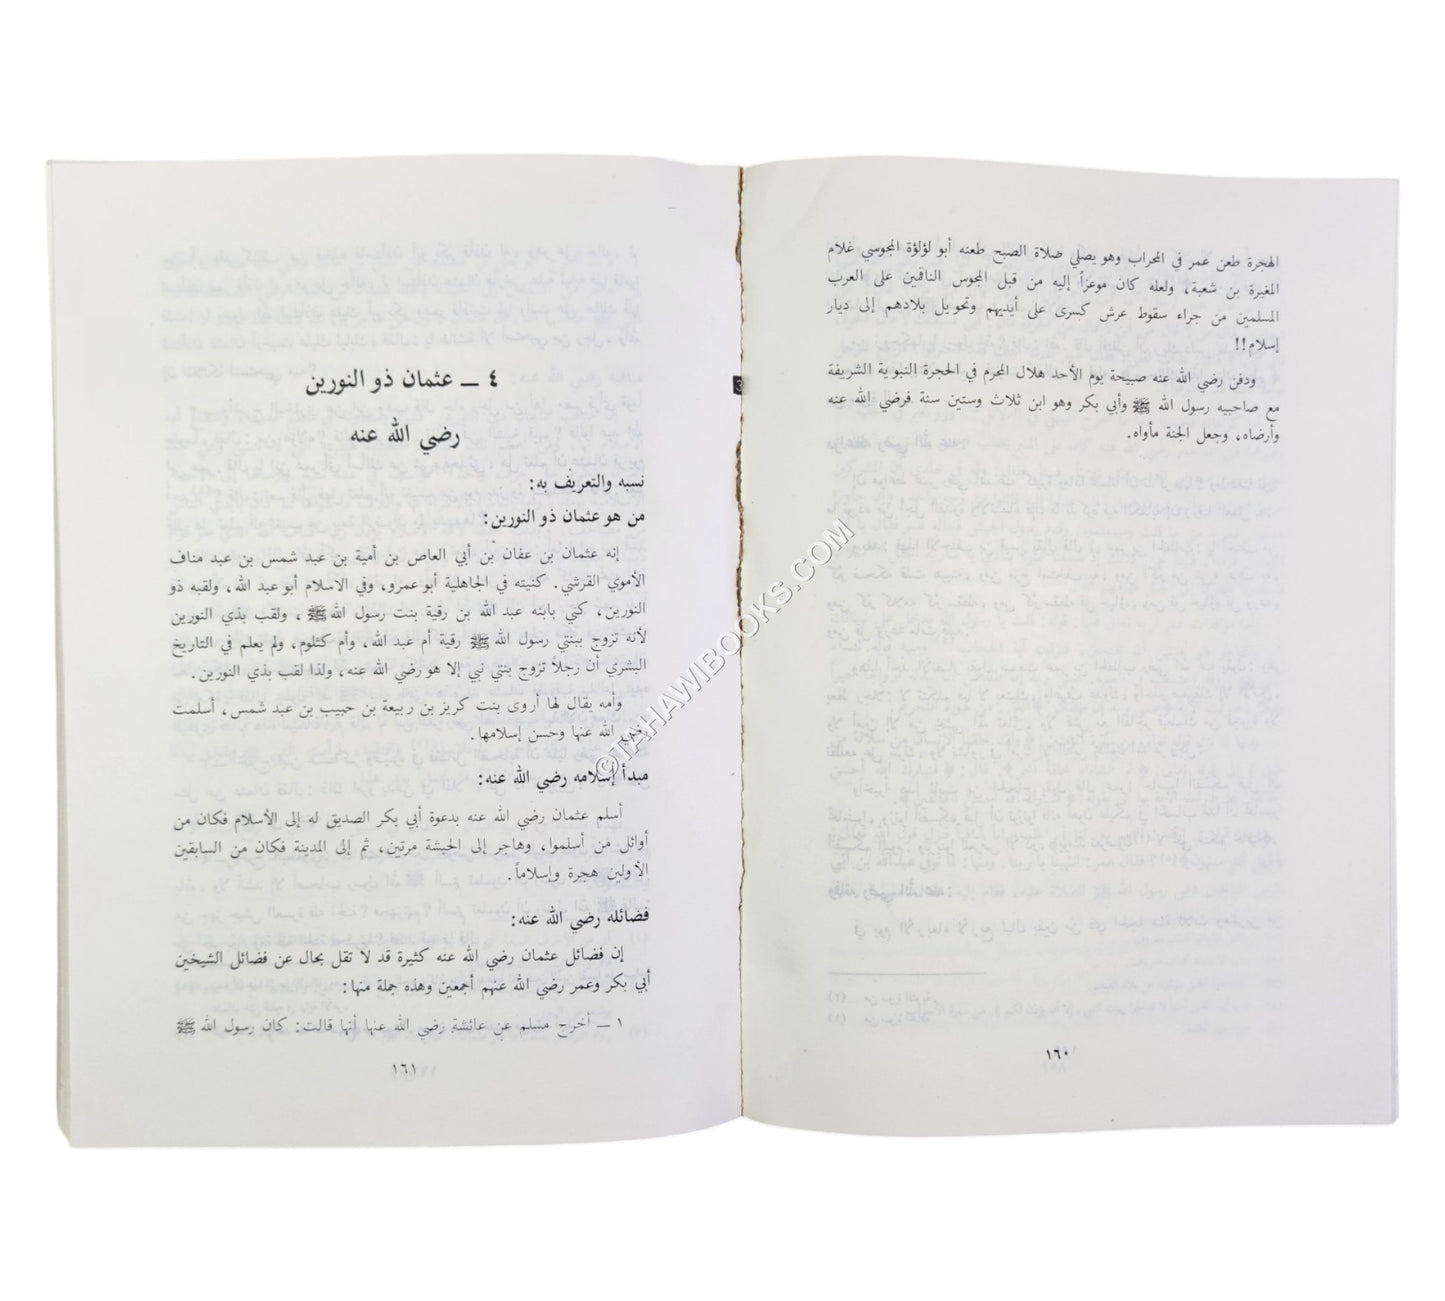 الهجرة طعن عمر في المحراب وهو يصلي صلاة الصبح طعنه أبو لؤلؤة المجوسي غلام
المغيرة بن شعبة، ولعله كان موعزاً إليه من قبل المجوس الناقمين على العرب
المسلمين من جراء سقوط عرش كسرى على أيديهم وتحويل بلادهم إلى ديار
إسلام!!
ودفن رضي الله عنه صبيحة يوم الأحد هلال المحرم في الحجرة النبوية الشريفة
مع صاحبيه رسول الله ﷺ وأبي بكر وهو ابن ثلاث وستين سنة فرضي الله عنه
وأرضاه، وجعل الجنة مأواه.
١٦٠
٤ ــ عثمان ذو النورين
رضي الله عنه
نسبه والتعريف به:
من هو عثمان ذو النورين:
إنه عثمان بن عفان بن أبي العاص بن أمية بن عبد شمس بن عبد مناف
الأموي القرشي. كنيته في الجاهلية أبو عمرو، وفي الاسلام أبو عبد الله، ولقبه ذو
النورين، كني بابنه عبد الله بن رقية بنت رسول الله ﷺ، ولقب بذي النورين
لأنه تزوج ببنتي رسول الله ﷺ رقية أم عبد الله، وأم كثلوم، ولم يعلم في التاريخ
البشري أن رجلاً تزوج بنتي نبي إلا هو رضي الله عنه، ولذا لقب بذي النورين.
وأمه يقال لها أروى بنت كريز بن ربيعة بن حبيب بن عبد شمس، أسلمت
رضي الله عنها وحسن إسلامها.
مبدأ إسلامه رضي الله عنه:
أسلم عثمان رضي الله عنه بدعوة أبي بكر الصديق له إلى الأسلام فكان من
أوائل من أسلموا، وهاجر إلى الحبشة مرتين، ثم إلى المدينة فكان من السابقين
الأولين هجرة وإسلاماً.
فضائله رضي الله عنه:
إن فضائل عثمان رضي الله عنه كثيرة قد لا تقل بحال عن فضائل الشيخين
أبي بكر وعمر رضي الله عنهم أجمعين وهذه جملة منها:
١ ــ أخرج مسلم عن عائشة رضي الله عنها أنها قالت: كان رسول الله ﷺ
١٦١
©TAHAWIBOOKS.COM